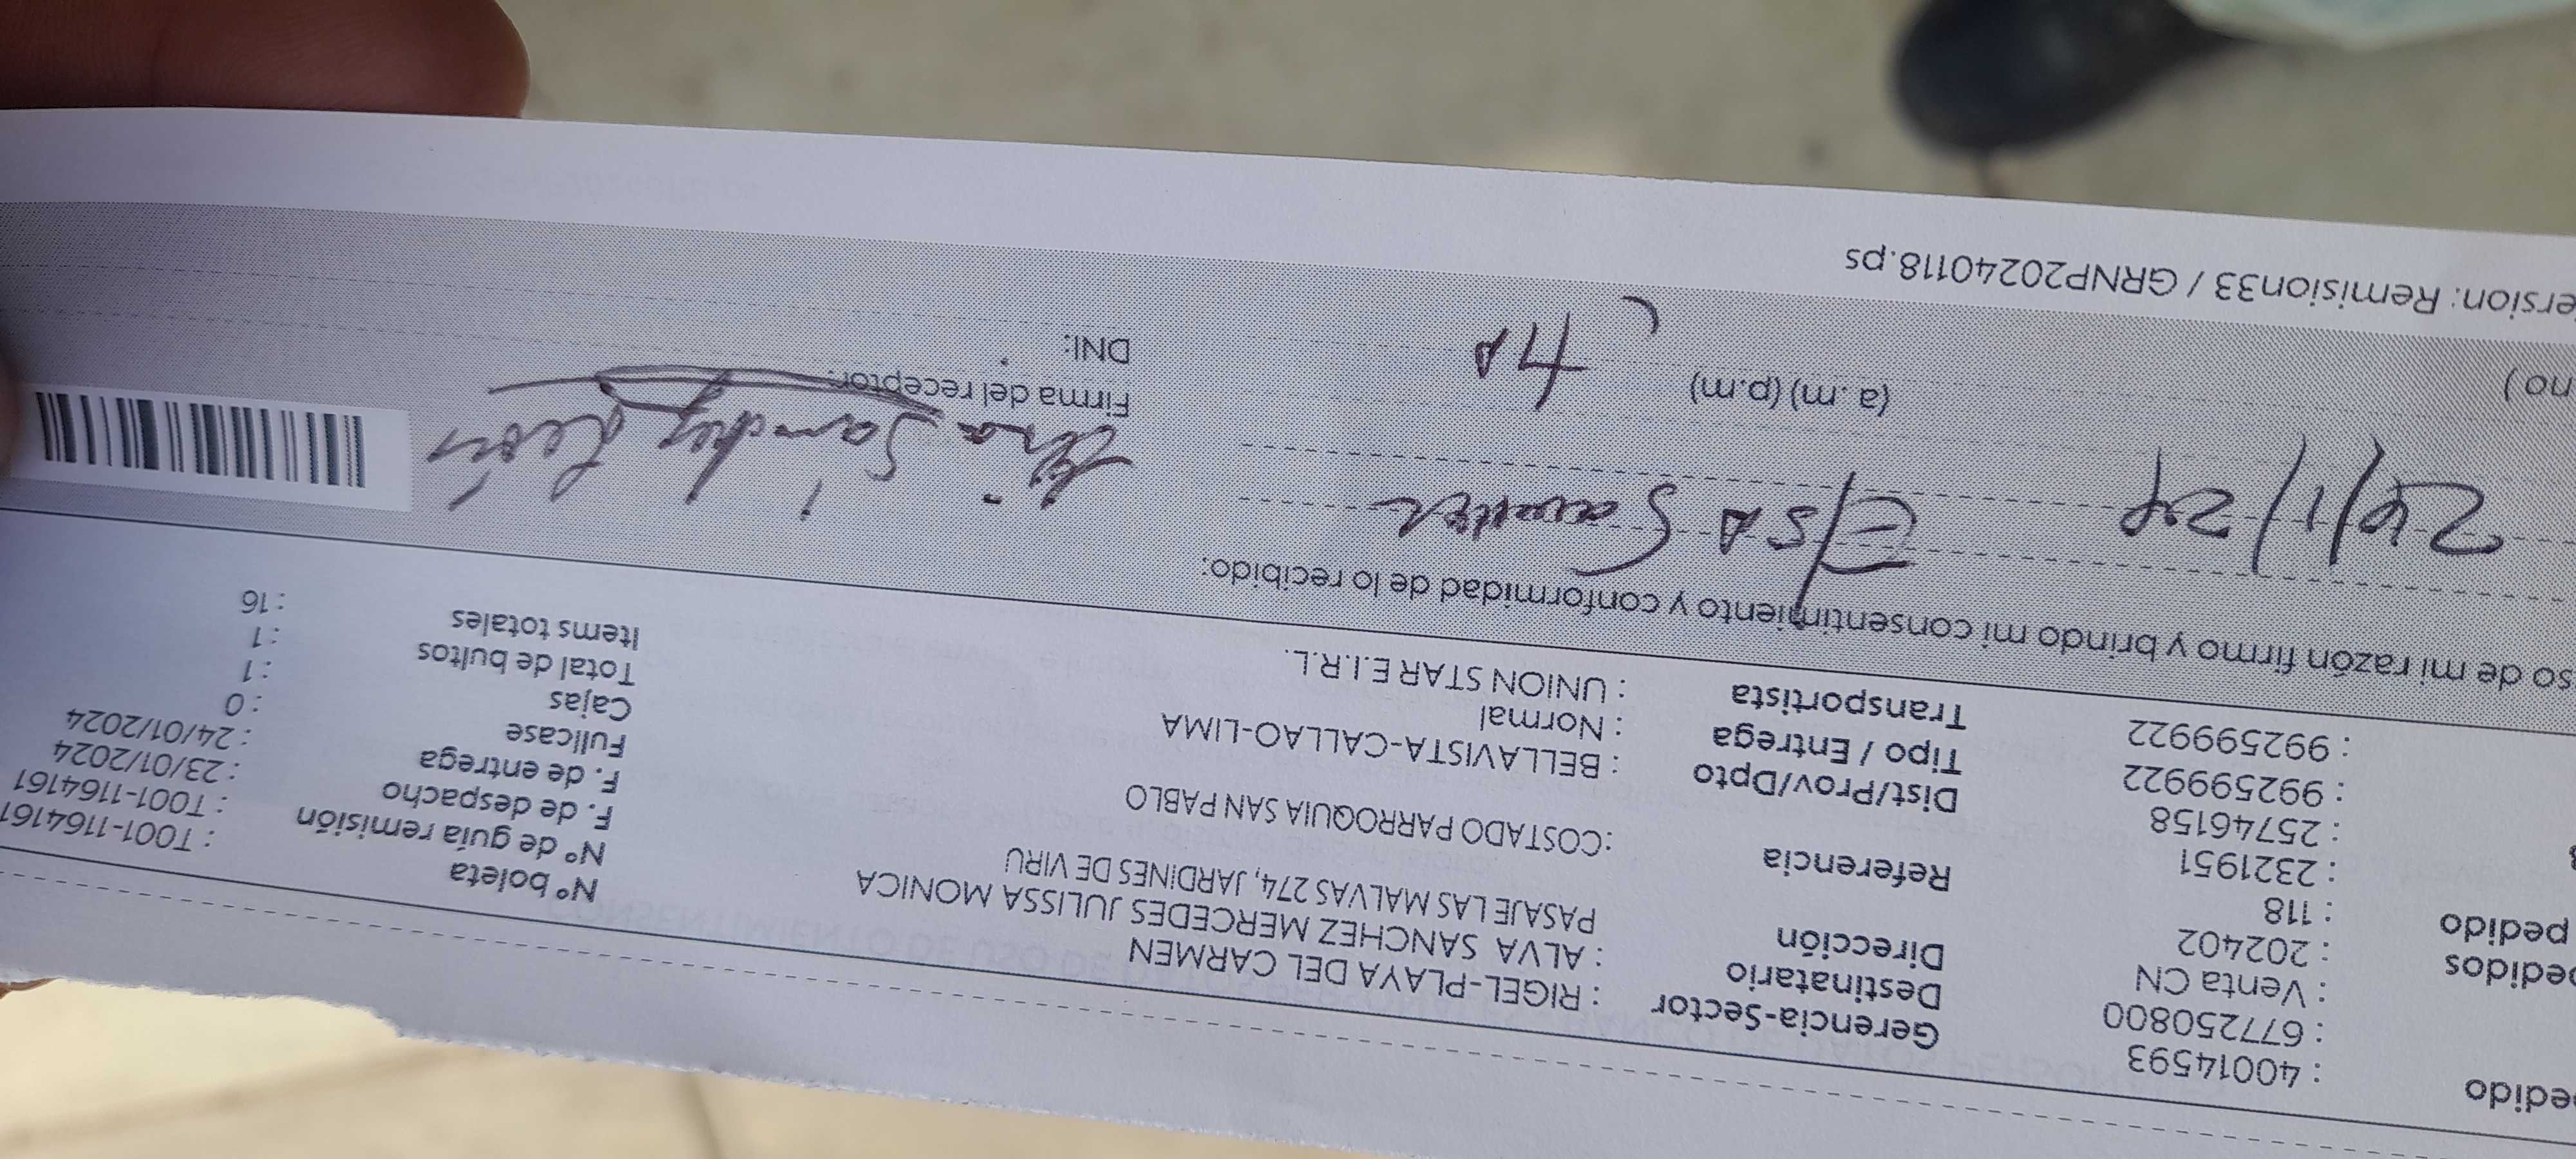 edido : 40014593
: 677250800
: Venta CN
pedidos : 202402
pedido : 118
: 2321951
: 25746158
: 992599922
: 992599922
Gerencia-Sector : RIGEL-PLAYA DEL CARMEN
Destinatario : ALVA SANCHEZ MERCEDES JULISSA MONICA
Dirección PASAJE LAS MALVAS 274, JARDINES DE VIRU
Referencia :COSTADO PARROQUIA SAN PABLO
Dist/Prov/Dpto : BELLAVISTA-CALLAO-LIMA
Tipo / Entrega : Normal
Transportista : UNION STAR E.I.R.L.
Nº boleta : T001-1164161
Nº de guía remisión : T001-1164161
F. de despacho : 23/01/2024
F. de entrega : 24/01/2024
Fullcase : 0
Cajas : 1
Total de bultos : 1
Items totales : 16
so de mi razón firmo y brindo mi consentimiento y conformidad de lo recibido:
24/1/24 Elsa Sanchez Elsa Sanchez León
no ) (a .m) (p.m)
Firma del receptor:
DNI:
ersion: Remision33 / GRNP20240118.ps